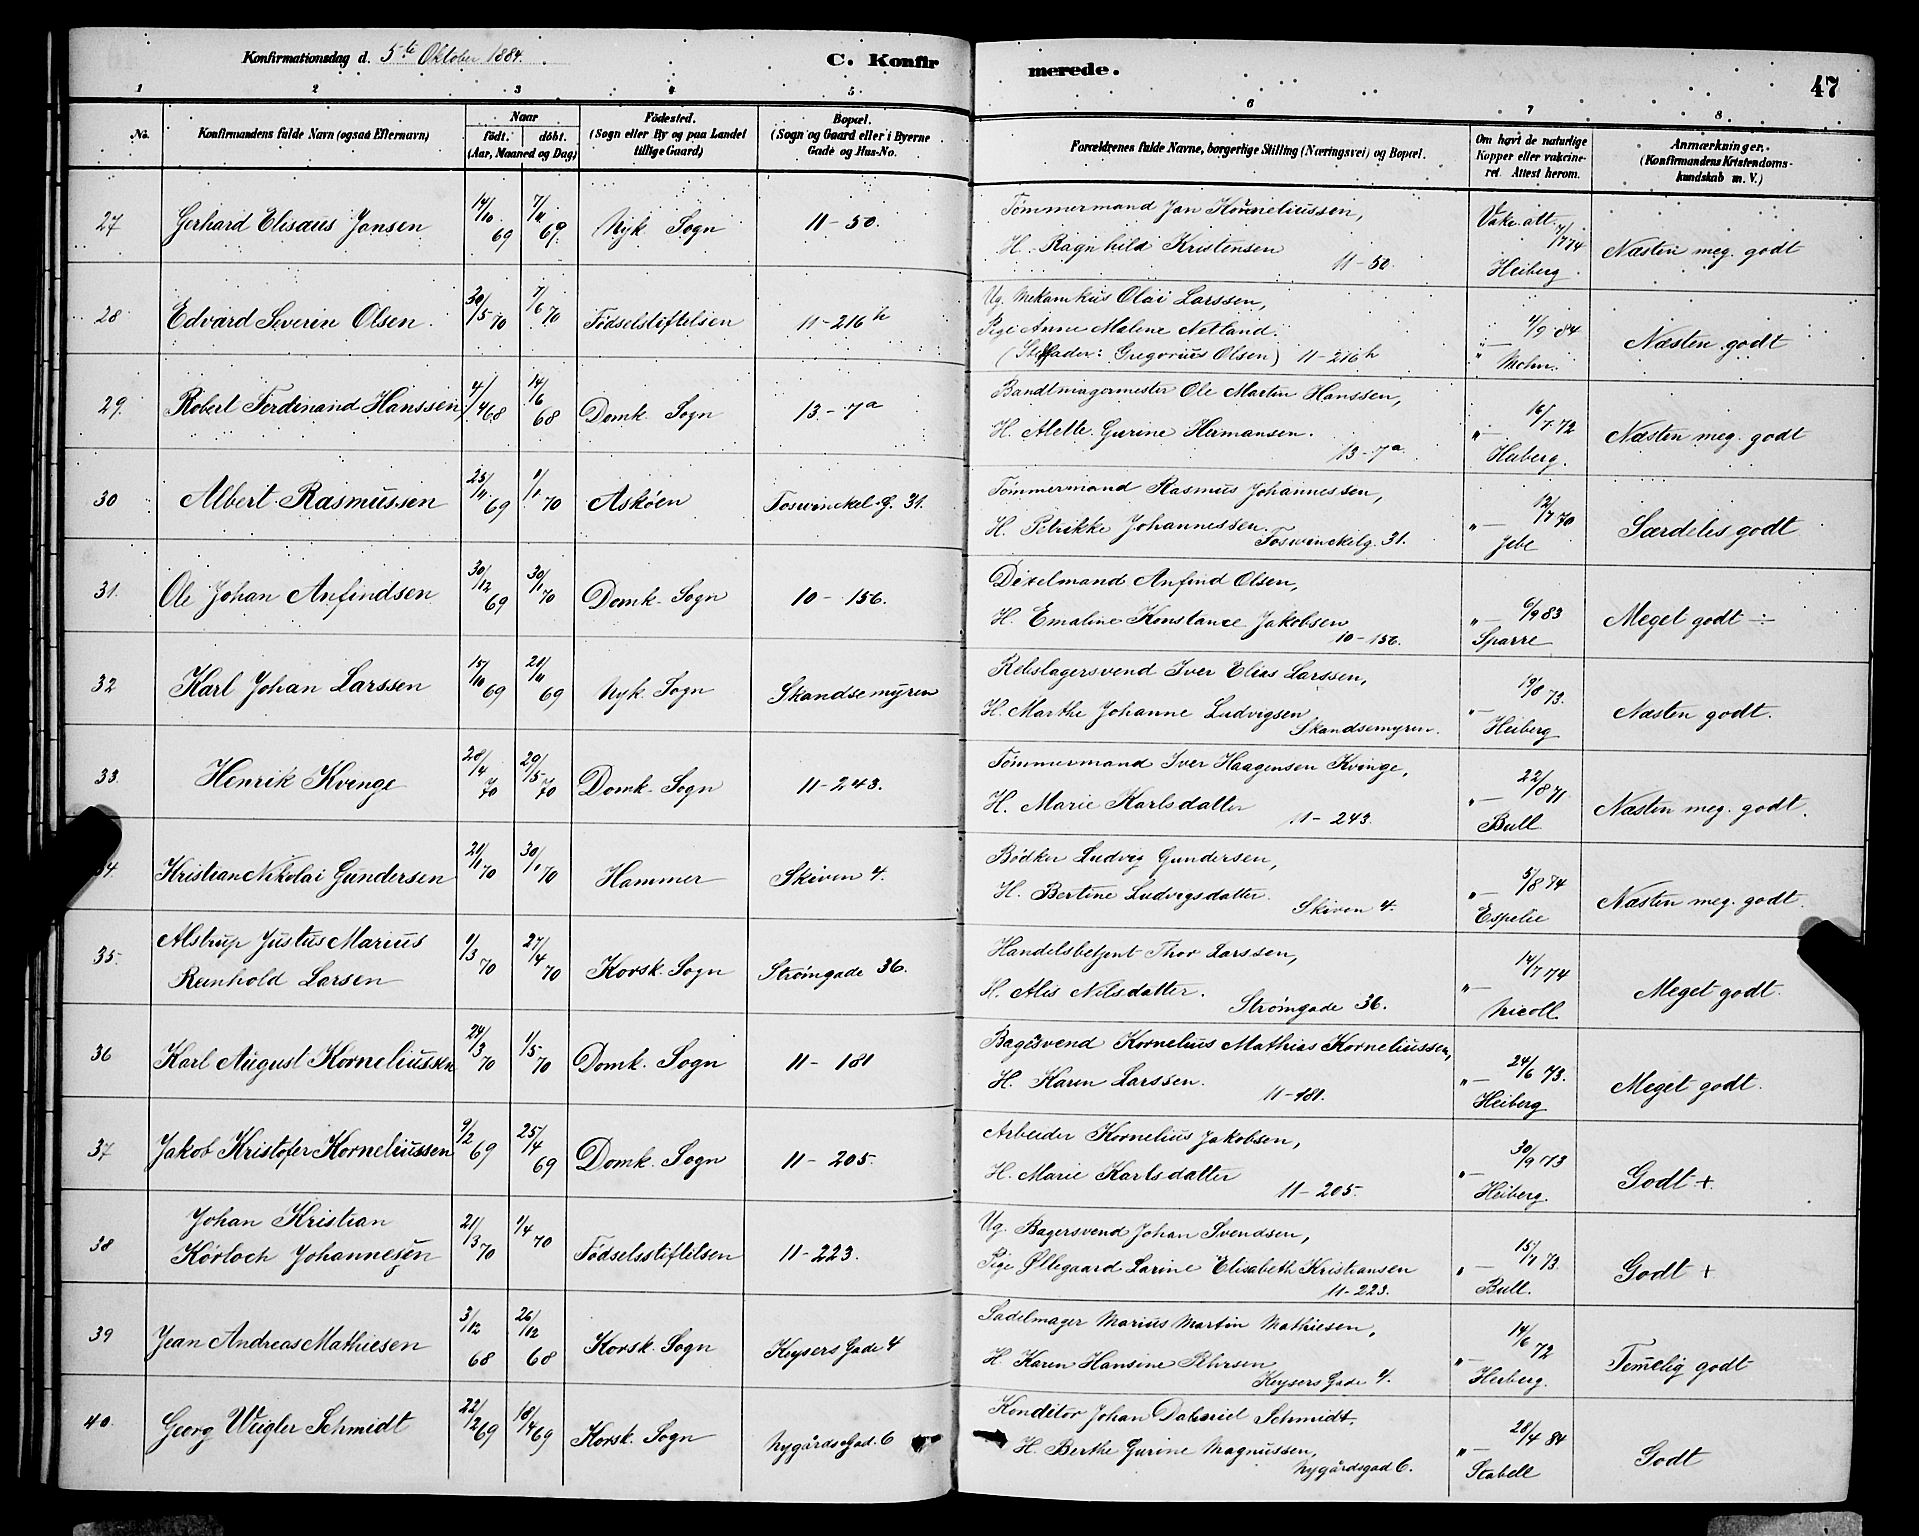 Konfirmationsdag d. 5te Oktober 1884. C. Konfirmerede. 47
1 2 3 4 5 6 7 8
No. Konfirmandens fulde Navn (ogsaa Efternavn) Naar født. døbt. (Aar, Maaned og Dag) Fødested. (Sogn eller By og paa Landet tillige Gaard) Bopæl. (Sogn og Gaard eller i Byerne Gade og Hus-No. Forældrenes fulde Navne, borgerlige Stilling (Næringsvei) og Bopæl. Om havt de naturlige Kopper eller vakcineret. Attest herom. Anmærkninger. (Konfirmandens Kristendomskundskab m. V.)
27 Gerhard Elisæus Jansen 14/10 69 7/11 69 Nyk. Sogn 11-50. Tømmermand Jan Korneliussen, Vake. att. 7/7 74
H. Ragnhild Kristensen 11-50. Heiberg. Næsten meg. godt
28 Edvard Severin Olsen. 30/5 70 7/6 70 Fødselstiftelsen 11-216h Ug. Mekanikus Olai Larssen,
Pige Anne Malene Netland. " 4/9 84 Næsten godt
(Stiffader: Gregorius Olsen) 11-216h " Mohn.
29. Robert Ferdinand Hanssen 4/4 68 14/6 68 Domk. Sogn 13-7a Bandtmagermester Ole Martin Hanssen,
H. Alette Gurine Hermansen. 13-7a. " — 16/7 72 Heiberg. Næsten meg. godt
30 Albert Rasmussen 25/11 69 1/1 70 Askøen Foswinckel.G. 31. Tømmermand Rasmus Johannessen,
H. Petrikke Johannessen. Foswinckelg. 31. " — 12/7 70 Jebe Særdeles godt
31. Ole Johan Anfindsen 30/12 69 30/1 70 Domk. Sogn 10-156. Dixelmand Anfind Olsen,
H. Emaline Konstance Jakobsen 10-156. " — 6/9 83 Sparre Meget godt ÷
32 Karl Johan Larssen 15/10 69 21/11 69 Nyk. Sogn Skandsemyren Rebslagersvend Iver Elias Larssen,
H. Marthe Johanne Ludvigsen Skandsemyren. " — 19/8 73. Heiberg Næsten godt.
33. Henrik Kvinge 28/4 70 29/5 70 Domk. Sogn 11-243. Tømmermand Iver Haagensen Kvinge,
H. Marie Karlsdatter 11-243. " — 22/8 71 Bull. Næsten meg. godt.
34. Kristian Nikolai Gundersen 21/1 70 30/1 70 Hammer Skiven 4. Bødker Ludvig Gundersen,
H. Bertine Ludvigsdatter. Skiven 4. " — 5/8 74 Espelie Næsten meg. godt.
35. Alstrup Justus Marius 1/3 70 27/4 70 Korsk. Sogn Strømgade 36. Handelsbetjent Thor Larssen,
Reinhold Larsen H. Alis Nilsdatter. Strømgade 36. " — 14/7 74 Nicoll. Meget godt.
36 Karl August Korneliussen 24/3 70 1/5 70 Domk. Sogn 11-181 Bagersvend Kornelius Mathias Korneliussen,
H. Karen Larssen. 11-181. " — 24/6 73. Heiberg Meget godt.
37 Jakob Kristofer Korneliussen 9/2 69 25/4 69 Domk. Sogn 11-205. Arbeider Kornelius Jakobsen,
H. Marie Karlsdatter 11-205. " — 30/9 73 Heiberg. Godt +.
38 Johan Kristian 21/3 70 1/4 70 Fødselsstiftelsen 11-223. Ug. Bagersvend Johan Svendsen,
Korloch Johannesen Pige Øllegaard Larine Elisabeth Kristiansen 11-223. " — 15/7 73. Bull. Godt +
39 Jean Andreas Mathiesen 3/12 68 26/12 68 Korsk. Sogn Keysers Gade 4 Sadelmager Marius Martin Mathiesen,
H. Karen Hansine Pehrsen, Keysers Gade 4. " — 14/6 72 Heiberg. Temelig godt
40. Georg Weigler Schmidt 22/2 69 18/4 69 Korsk. Sogn Nygårdsgad. 6 Konditor Johan Dabriel Schmidt.
H. Berthe Gurine Magnussen, Nygårdsgad 6. " — 28/4 84 Stabell Godt